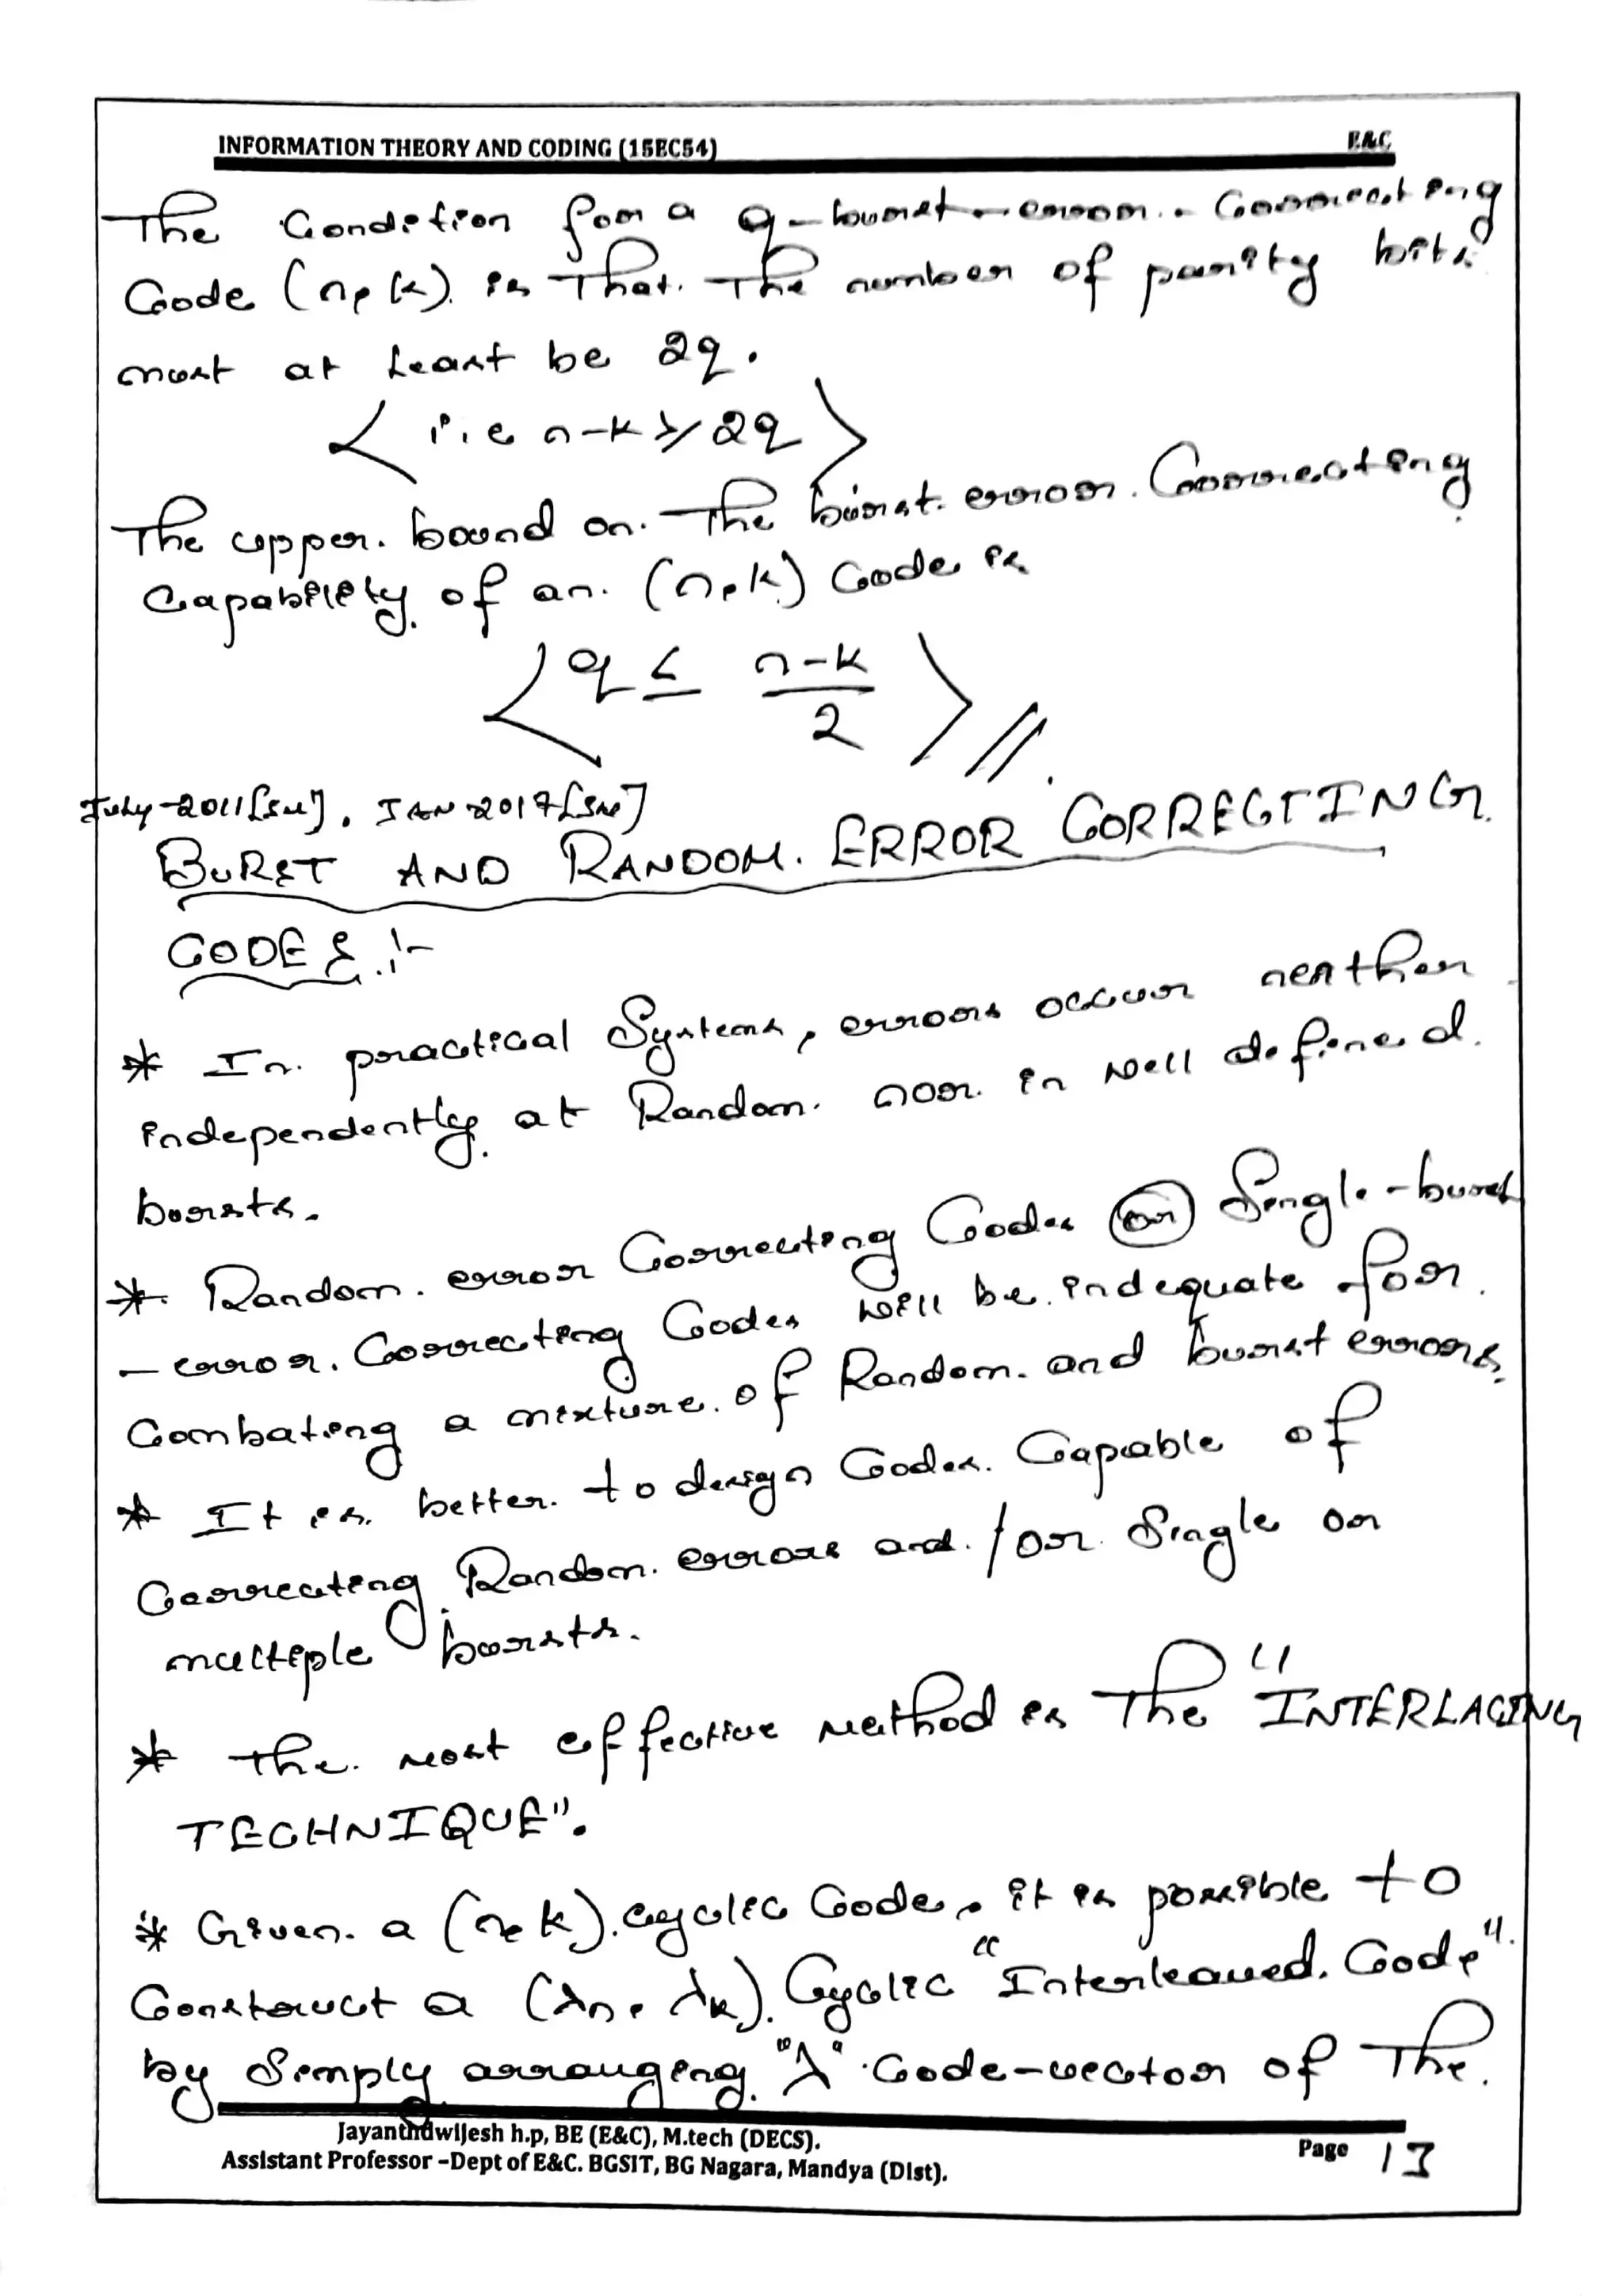 INFORMATION THEORY AND CODING (15EC54) E&C
The Condition for a q-burst-error-Correcting
Code (n, k) is That. The number of parity bits
must at Least be 2q.
< i.e n-k ≥ 2q >
The upper bound on The burst error Correcting
Capability of an (n, k) Code is
< q ≤ n-k/2 > //
July-2011[5M], JAN-2017[5M]
BURST AND RANDOM ERROR CORRECTING
CODES :-
* In practical Systems, errors occur neither
independently at Random nor in well defined
bursts.
* Random error Correcting Codes (or) Single-burst
-error Correcting Codes will be indequate for
Combating a mixture of Random and burst errors.
* It is better to design Codes Capable of
Correcting Random errors and /or Single or
multiple bursts.
* The most effective method is The "INTERLACING
TECHNIQUE".
* Given a (n, k) cyclic Code, it is possible to
Construct a (λn, λk) Cyclic "Interleaved Code"
by Simply arranging "λ" Code-vector of The
Jayanthdwijesh h.p, BE (E&C), M.tech (DECS).
Assistant Professor –Dept of E&C. BGSIT, BG Nagara, Mandya (Dist).
Page 13